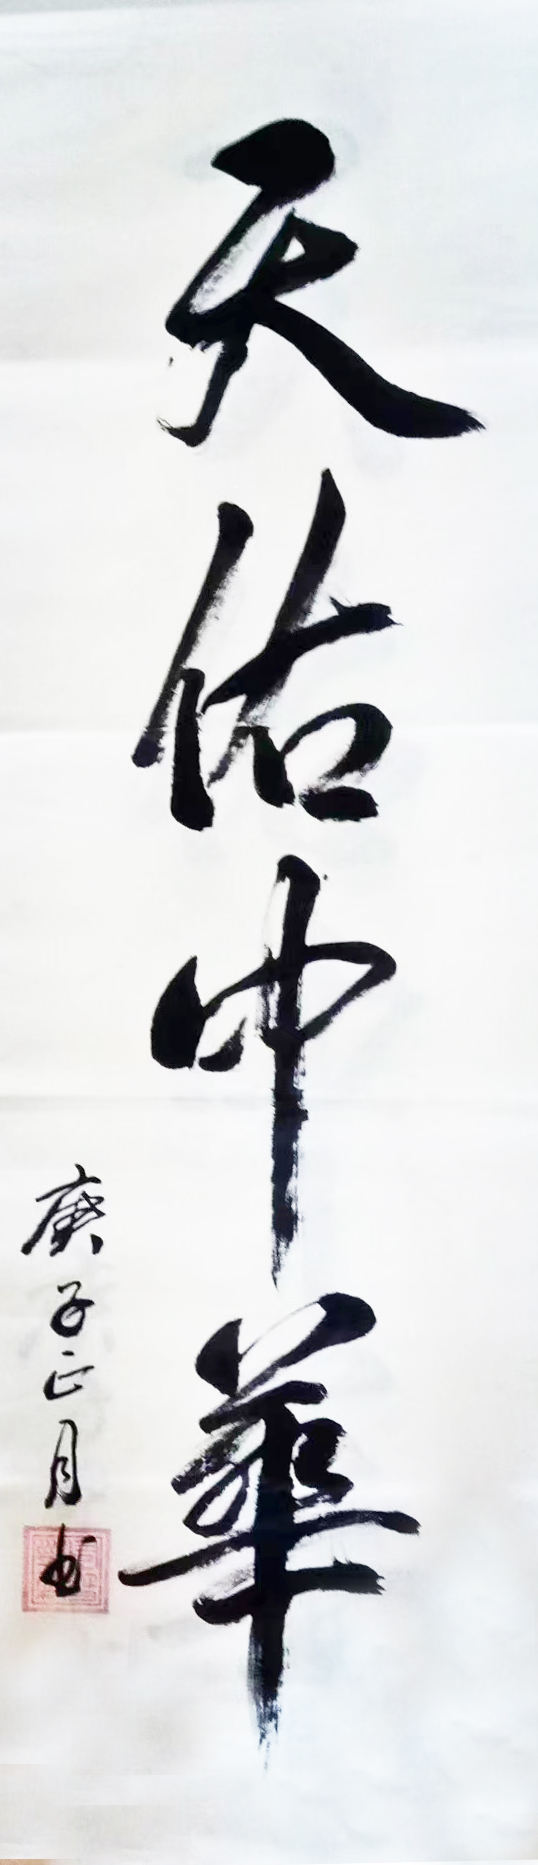 天佑中華
庚子正月书